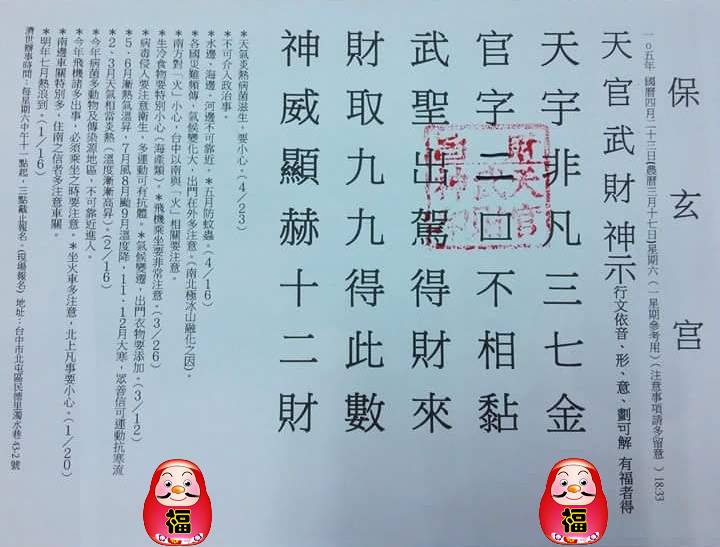 保玄宮
一o五年 國曆四月二十三日(農曆三月十七日)星期六(一星期參考用)(注意事項請多留意 ) 18:33
天官武財神示 行文依音、形、意、劃可解 有福者得
天宇非凡三七金
官字二口不相黏
武聖出駕得財來
財取九九得此數
神威顯赫十二財
＊天氣炎熱病菌滋生，要小心。(4／23)
＊不可介入政治事。
＊水邊、海邊。河邊不可靠近。＊五月防蚊蟲。(4／16)
＊各國災難頻傳，氣候變化大，出門在外多注意。(南北極冰山融化之因)。
＊南方對「火」小心，台中以南與「火」相關要注意。
＊生冷食物要特別小心(海產類)。＊飛機乘坐要非常注意。(3／26)
＊病毒侵人要注意衛生，多運動可有抗體。＊氣候變遷，出門衣物要添加。(3／12)
＊5．6月漸熱氣溫昇，7月風8月颱9月溫度降，11．12月大寒，眾善信可運動抗寒流
＊2、3月天氣相當炎熱(溫度漸漸高昇)。(2／16)
＊今年病菌多動物及傳染源地區，不可靠近進入。
＊今年飛機諸多出事，必須乘坐之時要注意。＊坐火車多注意，北上凡事要小心。(1／20)
＊南邊車關特別多，住南之信者多注意車關。
＊明年七月熱滾到。(1／16)
濟世辦事時間：每星期六中午十一點起，三點截止報名。(現場報名) 地址：台中市北屯區民德里濁水巷43-2號
福
福